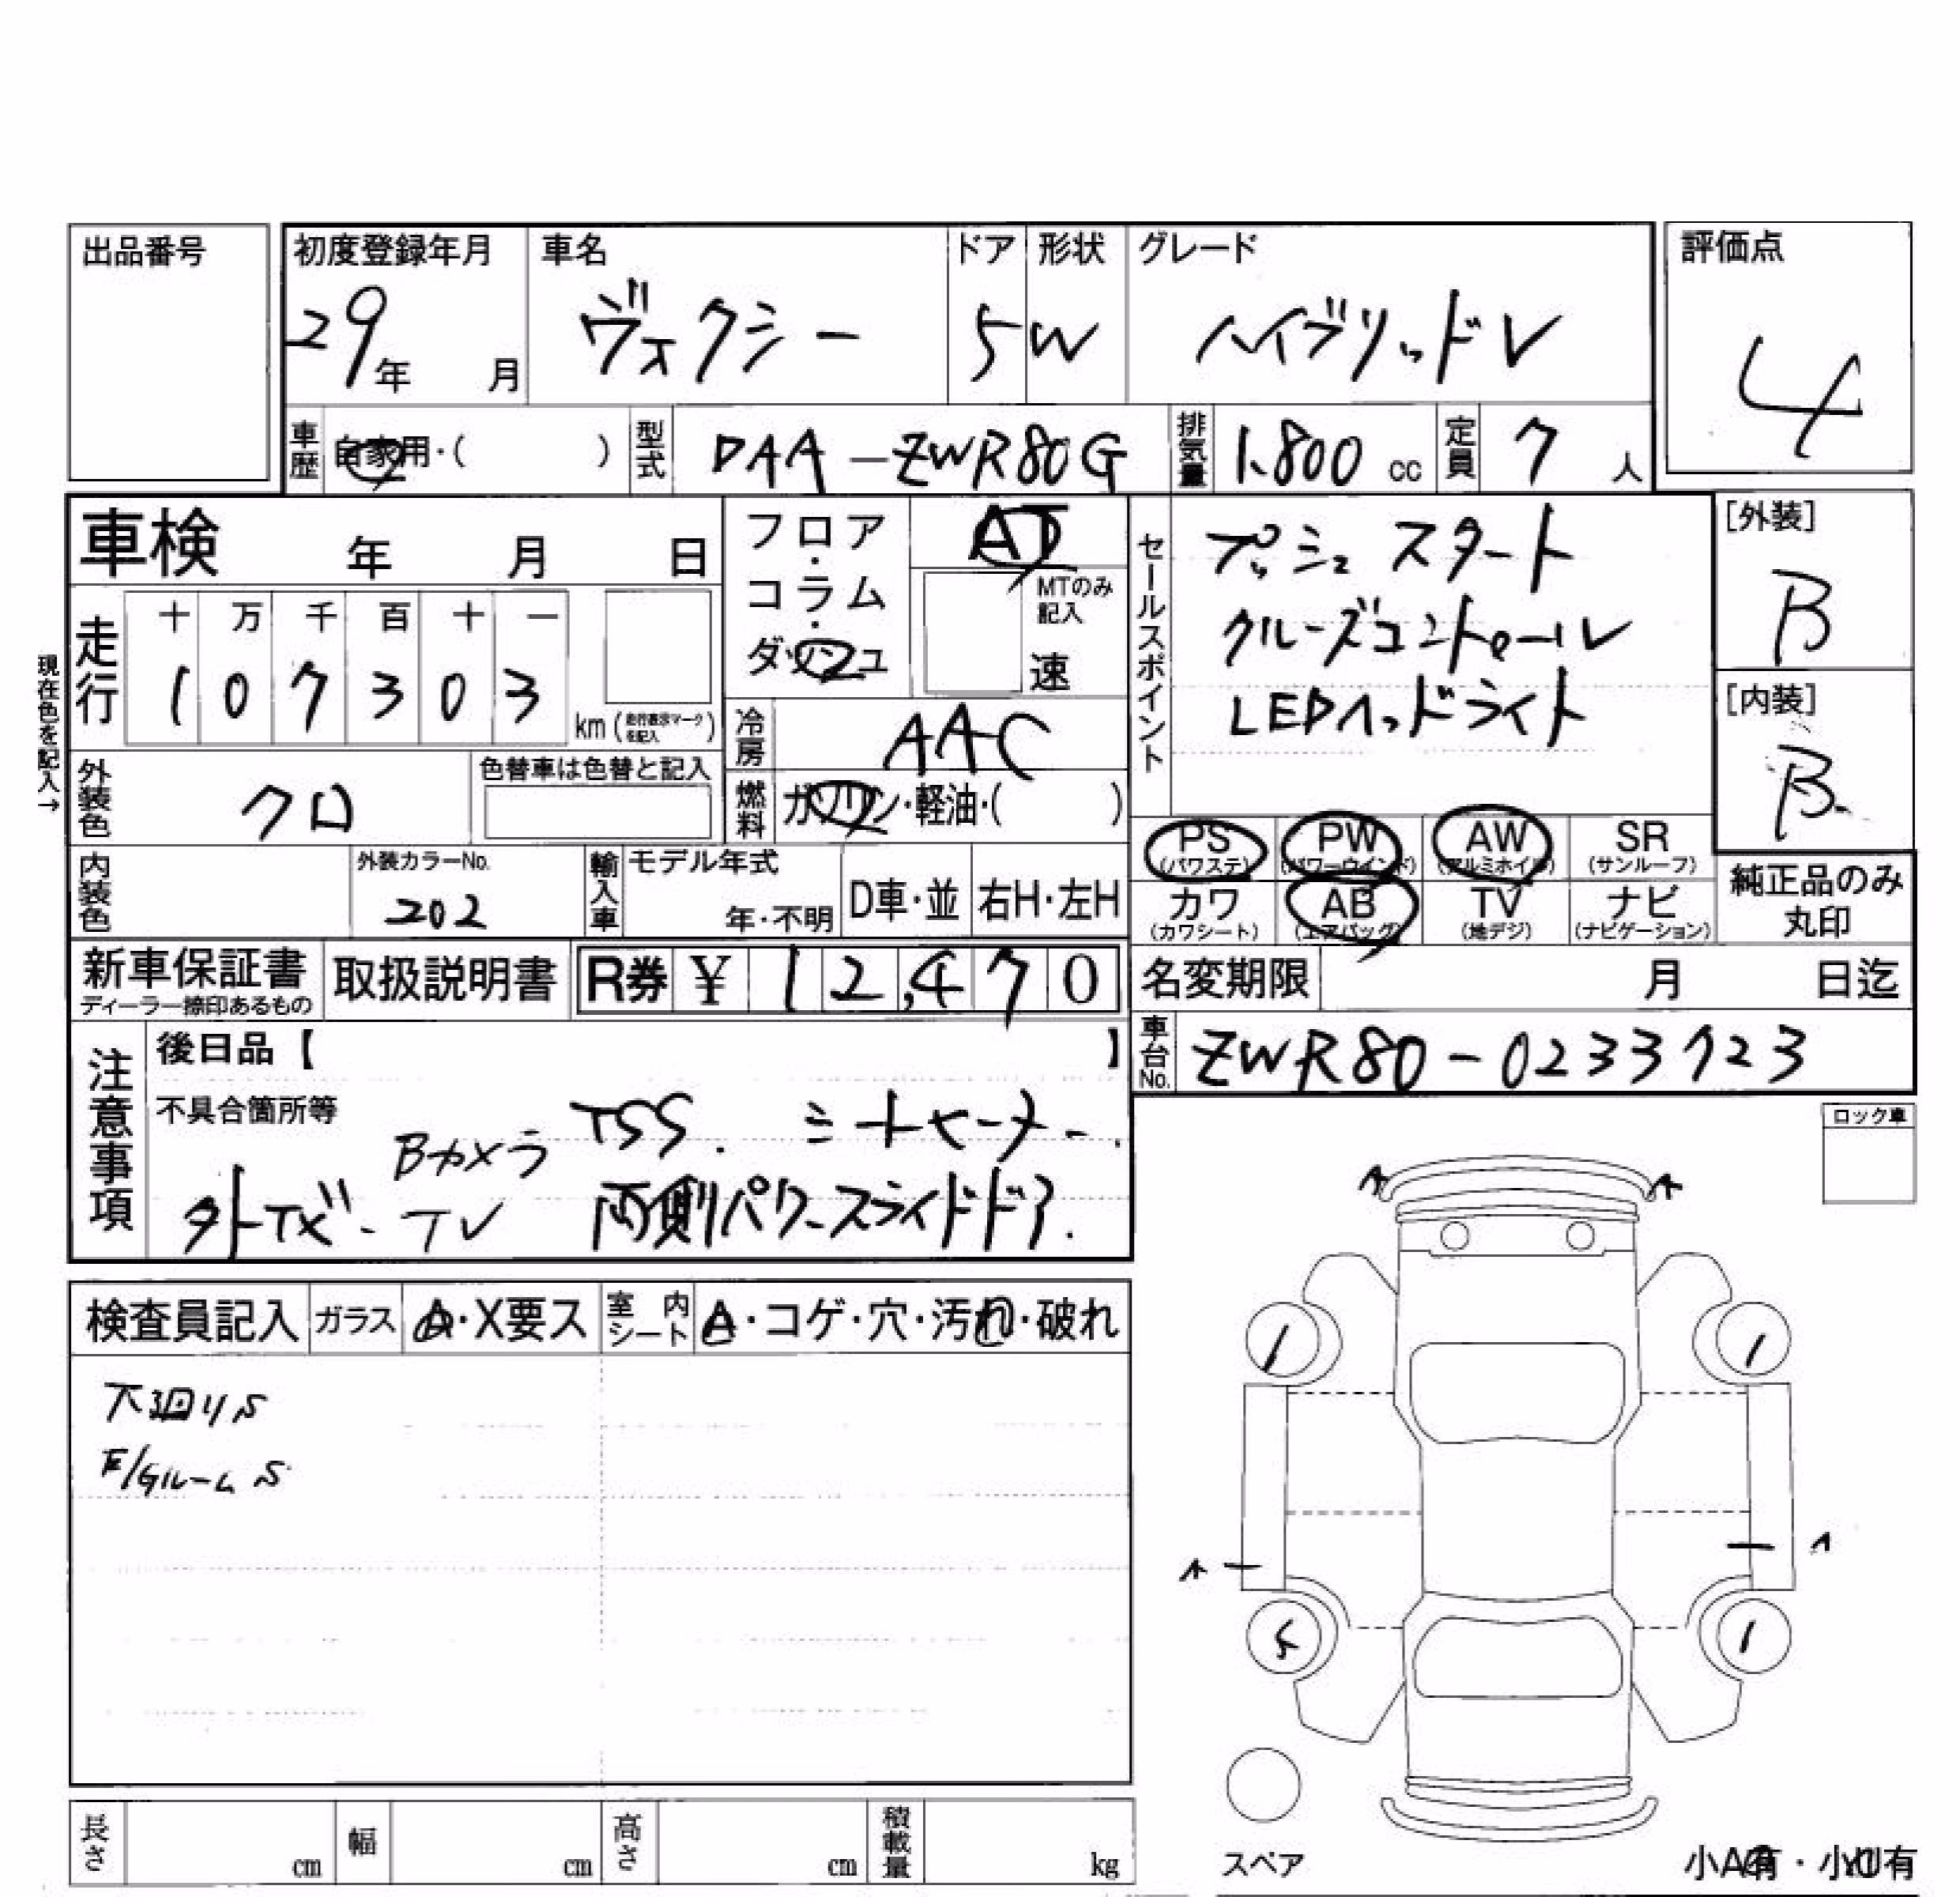 出品番号
初度登録年月 29年 月
車名 ヴォクシー
ドア 5
形状 W
グレード ハイブリッドV
評価点 4
車歴 自家用・( )
型式 DAA-ZWR80G
排気量 1.800 cc
定員 7 人
車検 年 月 日
フロア・コラム・ダッシュ
AT
MTのみ記入
速
セールスポイント
プッシュスタート
クルーズコントロール
LEDヘッドライト
[外装] B
[内装] B
現在色を記入→
走行 十 万 千 百 十 一
1 0 7 3 0 3
km (走行表示マークを記入)
冷房 AAC
燃料 ガソリン・軽油・( )
外装色 クロ
色替車は色替と記入
内装色
外装カラーNo. 202
輸入車 モデル年式 年・不明
D車・並 右H・左H
PS (パワステ) PW (パワーウインド) AW (アルミホイル) SR (サンルーフ)
カワ (カワシート) AB (エアバッグ) TV (地デジ) ナビ (ナビゲーション)
純正品のみ丸印
新車保証書 ディーラー捺印あるもの
取扱説明書
R券 ¥ 12,470
名変期限 月 日迄
車台No. ZWR80-0233723
注意事項
後日品【 】
不具合箇所等
Bカメラ TSS. シートヒーター.
TV 両側パワースライドドア.
ロック車
検査員記入 ガラス A・X要ス 室内シート A・コゲ・穴・汚れ・破れ
下廻りS
E/GルームS
A A
1 1
A A
5 1
スペア
小A有・小U有
長さ cm 幅 cm 高さ cm 積載量 kg